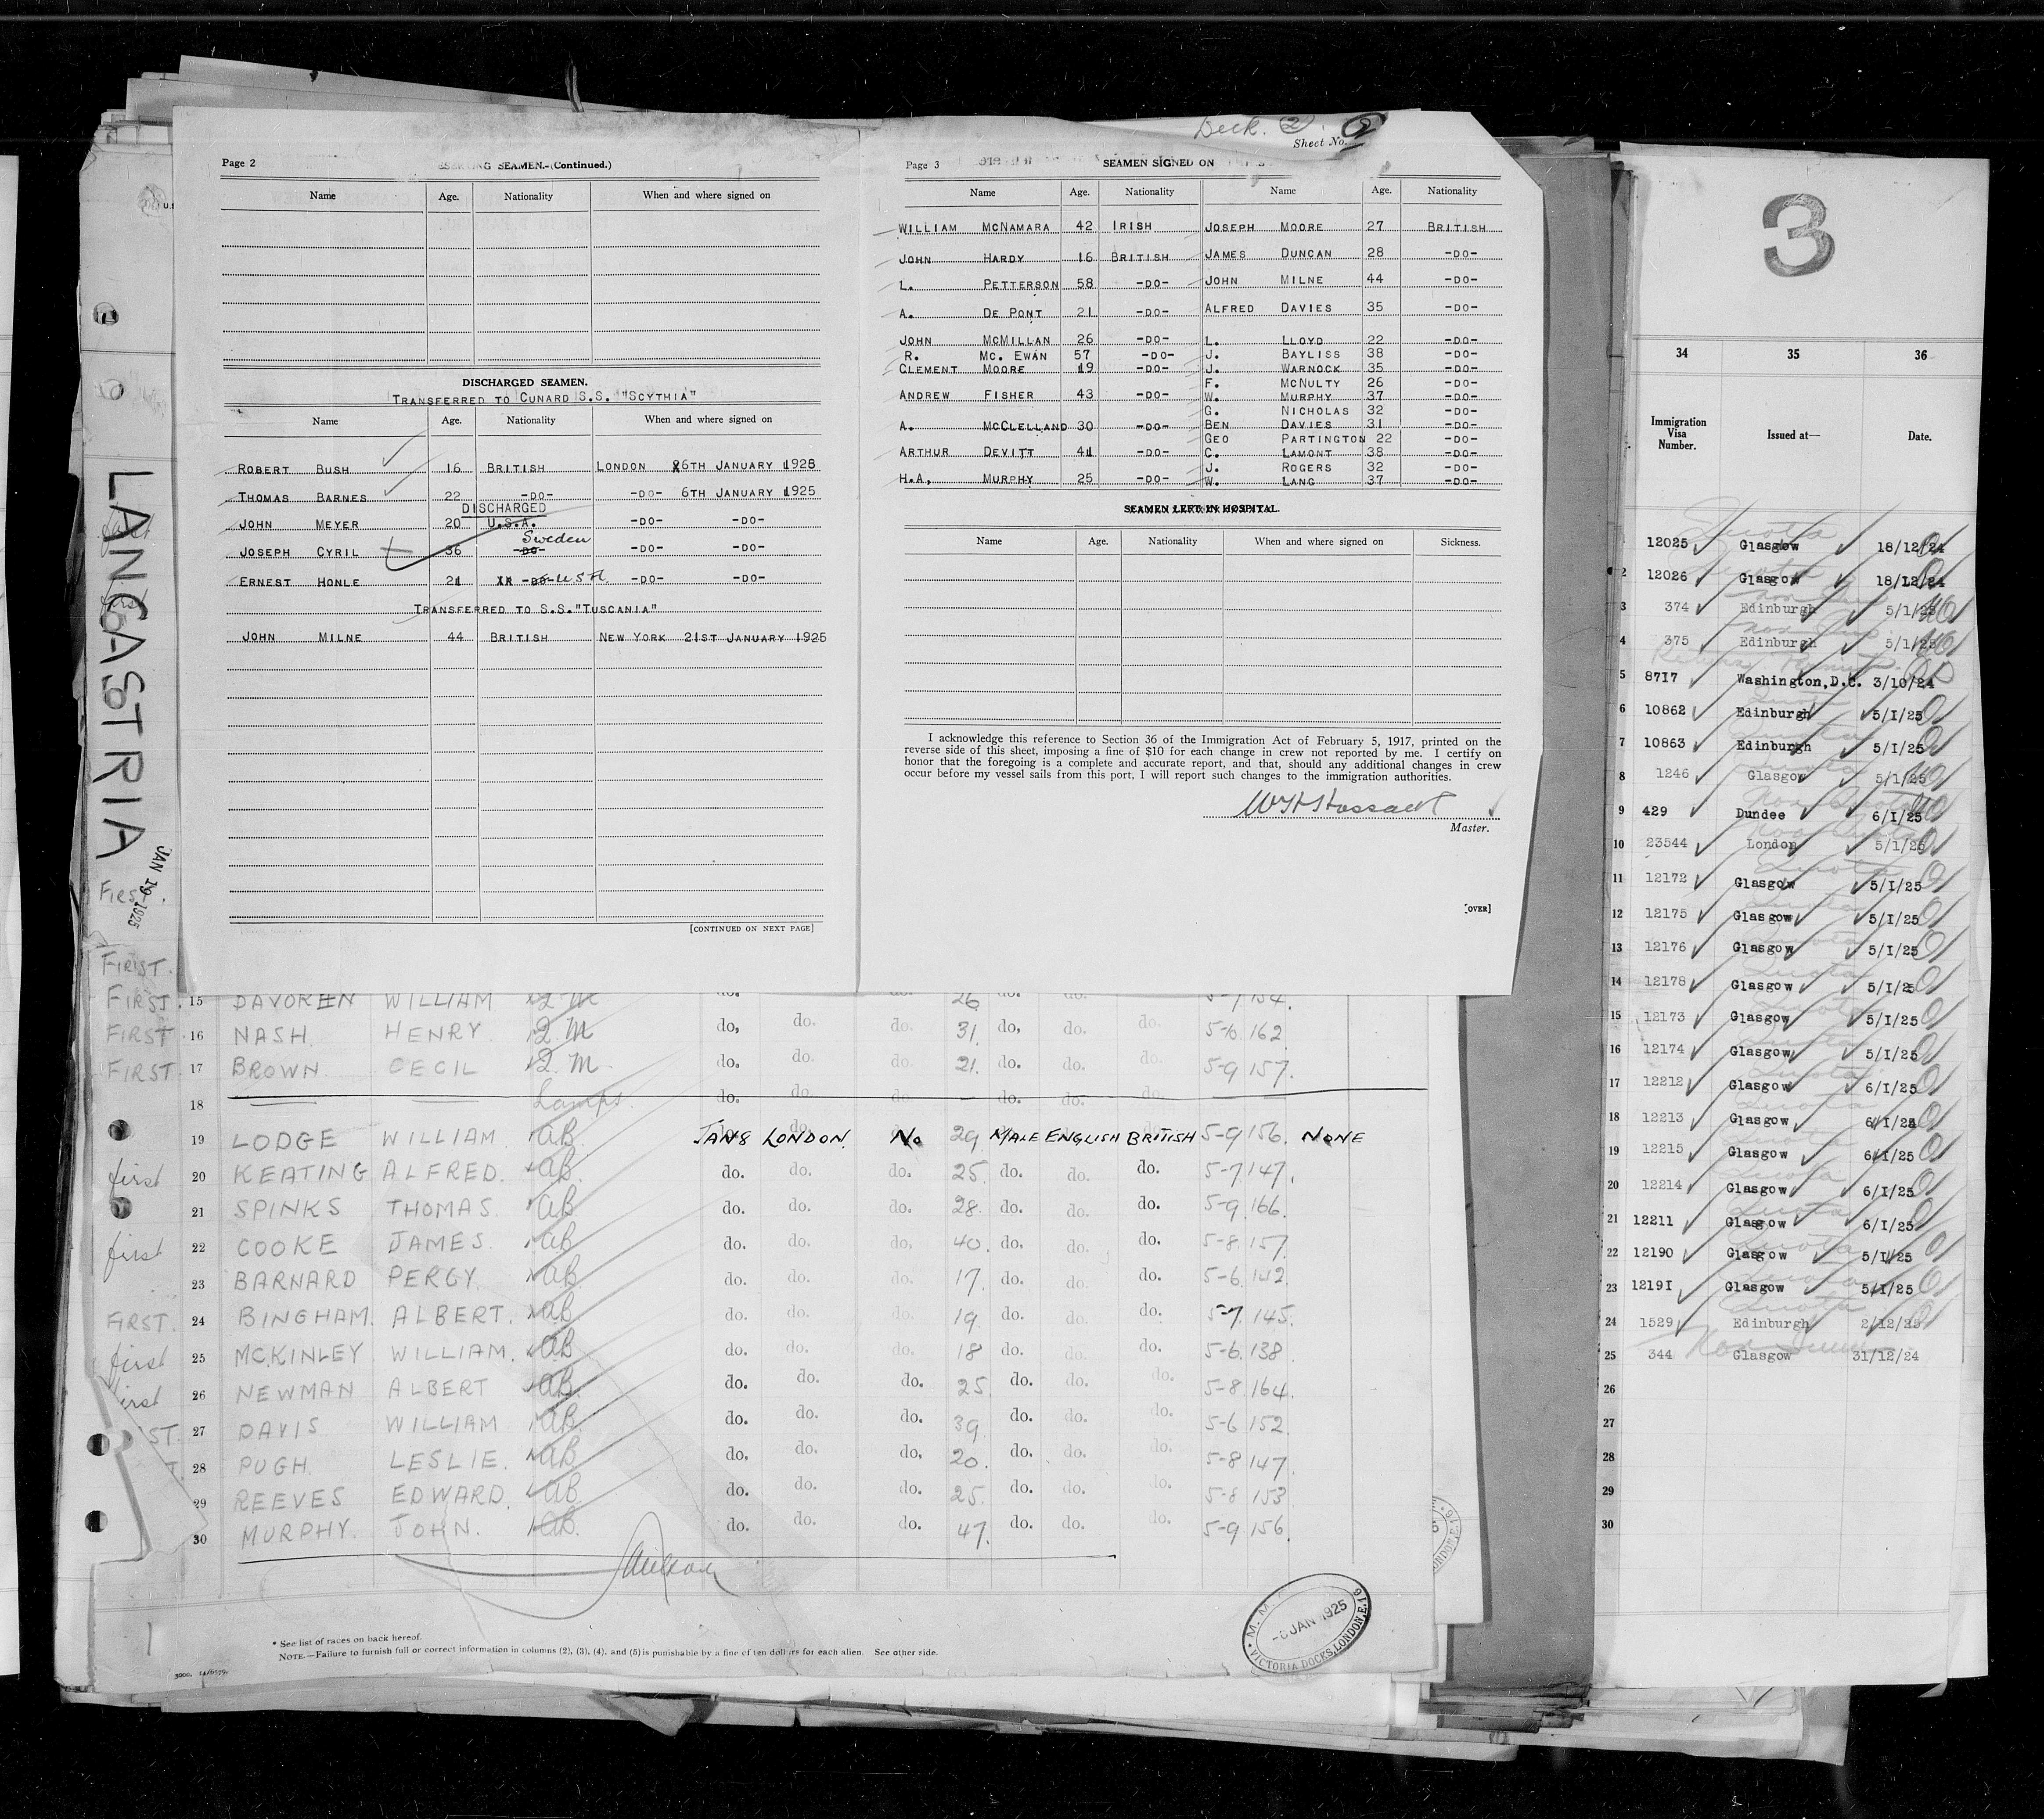 Page 2
SEAMEN.-(Continued.)
Name Age. Nationality When and where signed on
DISCHARGED SEAMEN.
TRANSFERRED TO CUNARD S.S. "SCYTHIA"
Name Age. Nationality When and where signed on
ROBERT BUSH 16 BRITISH LONDON 6TH JANUARY 1925
THOMAS BARNES 22 -DO- -DO- 6TH JANUARY 1925
DISCHARGED
JOHN MEYER 20 U.S.A. -DO- -DO-
Sweden
JOSEPH CYRIL 36 -DO- -DO- -DO-
ERNEST HONLE 21 -DO- USA -DO- -DO-
TRANSFERRED TO S.S."TUSCANIA"
JOHN MILNE 44 BRITISH NEW YORK 21ST JANUARY 1925
[CONTINUED ON NEXT PAGE]
Deck. 2
Sheet No.
Page 3 SEAMEN SIGNED ON
Name Age. Nationality Name Age. Nationality
WILLIAM MCNAMARA 42 IRISH JOSEPH MOORE 27 BRITISH
JOHN HARDY 16 BRITISH JAMES DUNCAN 28 -DO-
L. PETTERSON 58 -DO- JOHN MILNE 44 -DO-
A. DE PONT 21 -DO- ALFRED DAVIES 35 -DO-
JOHN MCMILLAN 26 -DO- L. LLOYD 22 -DO-
R. MC. EWAN 57 -DO- J. BAYLISS 38 -DO-
CLEMENT MOORE 19 -DO- J. WARNOCK 35 -DO-
F. MCNULTY 26 -DO-
ANDREW FISHER 43 -DO- W. MURPHY 37 -DO-
G. NICHOLAS 32 -DO-
A. MCCLELLAND 30 -DO- BEN DAVIES 31 -DO-
GEO PARTINGTON 22 -DO-
ARTHUR DEVITT 41 -DO- C. LAMONT 38 -DO-
J. ROGERS 32 -DO-
H.A, MURPHY 25 -DO- W. LANG 37 -DO-
SEAMEN LEFT IN HOSPITAL.
Name Age. Nationality When and where signed on Sickness.
I acknowledge this reference to Section 36 of the Immigration Act of February 5, 1917, printed on the
reverse side of this sheet, imposing a fine of $10 for each change in crew not reported by me. I certify on
honor that the foregoing is a complete and accurate report, and that, should any additional changes in crew
occur before my vessel sails from this port, I will report such changes to the immigration authorities.
Master.
[OVER]
LANCASTRIA
JAN 19 1925
First.
FIRST.
FIRST. 15 DAVOREN WILLIAM Q.M do. do. 26 do. do. 5-7 154.
FIRST 16 NASH. HENRY. Q.M do, do. do. 31. do, do. do. 5-10 162.
FIRST. 17 BROWN. CECIL Q.M. do. do. do. 21. do. do. do. 5-9 157.
18 Lamps. do. do. do. do. do.
19 LODGE WILLIAM. AB. JAN 8 LONDON. No 29 MALE ENGLISH BRITISH 5-9 156. NONE
first 20 KEATING ALFRED. AB. do. do. do. 25. do. do. do. 5-7 147.
21 SPINKS THOMAS. AB do. do. do. 28. do. do. do. 5-9 166.
first 22 COOKE JAMES. AB do. do. do, 40. do. do. do. 5-8 157.
23 BARNARD PERCY. AB do. do. do. 17. do. do. do. 5-6 142.
FIRST. 24 BINGHAM. ALBERT. AB. do. do. do. 19. do. do. do. 5-7 145.
first 25 MCKINLEY WILLIAM. AB do. do. do. 18 do. do. do. 5-6 138
first 26 NEWMAN ALBERT AB. do. do. do. 25. do. do. do. 5-8 164.
ST. 27 DAVIS WILLIAM AB. do. do. do. 39. do. do. do. 5-6 152.
T. 28 PUGH. LESLIE. AB do, do. do, 20. do. do. do. 5-8 147.
29 REEVES EDWARD. AB do. do. do. 25. do. do. do. 5-8 153
30 MURPHY. JOHN. AB. do. do. do. 47. do. do. do. 5-9 156.
* See list of races on back hereof.
NOTE.—Failure to furnish full or correct information in columns (2), (3), (4), and (5) is punishable by a fine of ten dollars for each alien. See other side.
JAN 1925
VICTORIA DOCKS, LONDON, E.16
3
34 35 36
Immigration Visa Number. Issued at— Date.
12025 Glasgow 18/12/24
2 12026 Glasgow 18/12/24
3 374 Edinburgh 5/1/25
4 375 Edinburgh 5/1/25
5 8717 Washington,D.C. 3/10/24
6 10862 Edinburgh 5/I/25
7 10863 Edinburgh 5/I/25
8 1246 Glasgow 5/1/25
9 429 Dundee 6/I/25
10 23544 London 5/1/25
11 12172 Glasgow 5/I/25
12 12175 Glasgow 5/I/25
13 12176 Glasgow 5/I/25
14 12178 Glasgow 5/I/25
15 12173 Glasgow 5/I/25
16 12174 Glasgow 5/I/25
17 12212 Glasgow 6/I/25
18 12213 Glasgow 6/I/25
19 12215 Glasgow 6/I/25
20 12214 Glasgow 6/I/25
21 12211 Glasgow 6/I/25
22 12190 Glasgow 5/I/25
23 12191 Glasgow 5/I/25
24 1529 Edinburgh 2/12/25
25 344 Glasgow 31/12/24
26
27
28
29
30